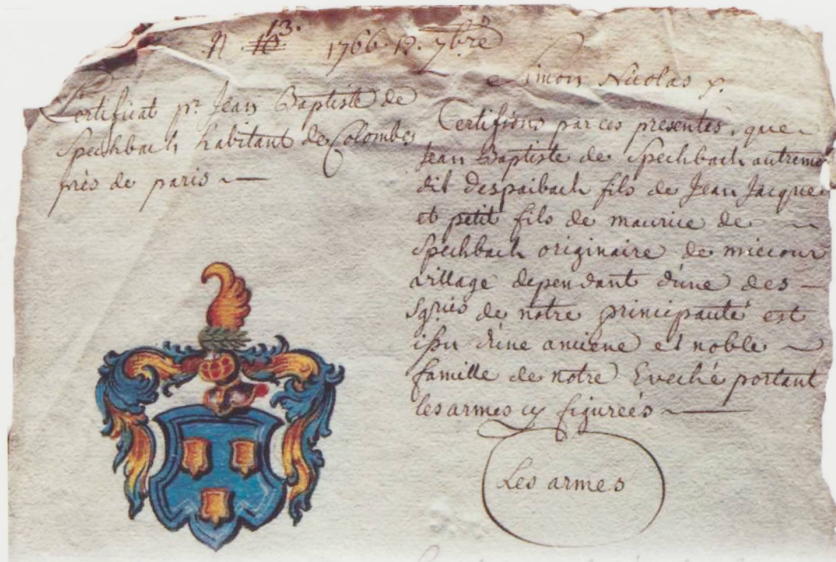 N. 16 13. 1766. 12. 7bre
Certificat pr. Jean Baptiste de
Spechbach habitant de Colombes
près de paris
Simon Nicolas &.
Certifions par ces presentes, que
Jean Baptiste de Spechbach autreme
dit despaibach fils de Jean Jacques
et petit fils de maurice de
Spechbach originaire de miecour
village dependant d'une des
sgries de notre principauté est
issu d'une anciene et noble
famille de notre Eveché portant
les armes cy figureés
Les armes